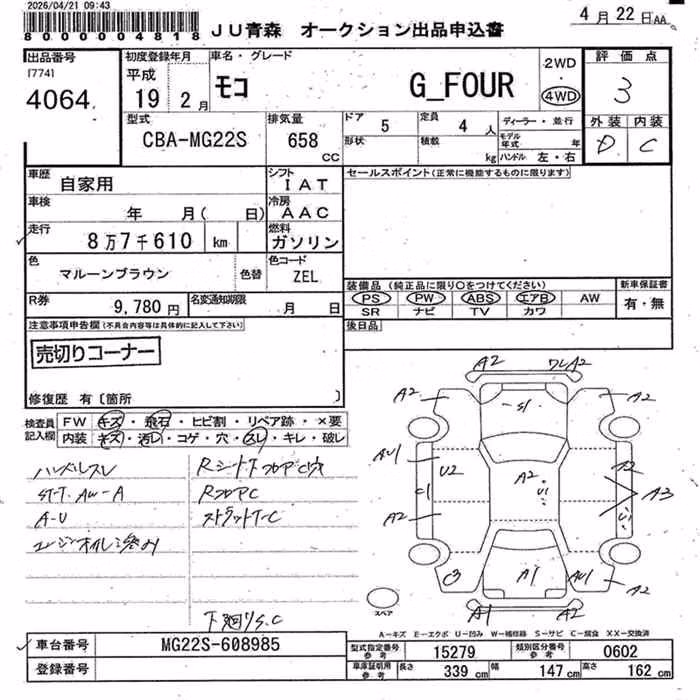 2026/04/21 09:43
8000004818
JU青森 オークション出品申込書
4月22日AA
出品番号
[774]
4064
初度登録年月
平成
19 2月
車名・グレード
モコ G_FOUR
2WD
4WD
評価点
3
外装 内装
D C
型式
CBA-MG22S
排気量
658 CC
ドア 5
形状
定員 4 人
積載 kg
ディーラー・並行
モデル年式 年
ハンドル 左・右
車歴
自家用
シフト
IAT
車検
年 月( 日)
冷房
AAC
走行
8万7千610 km
燃料
ガソリン
色
マルーンブラウン
色替
色コード
ZEL
R券
9,780円
名変通知期限
月 日
セールスポイント(正常に機能するものに限ります)
装備品 (純正品に限り〇をつけてください)
PS PW ABS エアB AW
SR ナビ TV カワ
新車保証書
有・無
後日品
注意事項申告欄(不具合内容等は具体的に記入して下さい)
売切りコーナー
修復歴 有〔箇所 〕
検査員記入欄
FW キズ・飛石・ヒビ割・リペア跡・×要
内装 キズ・汚レ・コゲ・穴・スレ・キレ・破レ
ハンドルスレ
ST-T.AW-A
A-U
エンジンオイルニジミ
RフロアC
ストラットT-C
下廻りS.C
A2
ワレA2
A2
A2
S1
AU1
U2
A2
U1
C1
A2
A3
U1
C3
A1
AU1
A2
A1
A2
スペア
A-キズ E-エクボ U-凹み W-補修跡 S-サビ C-腐食 XX-交換済
車台番号
MG22S-608985
登録番号
型式指定番号 参考
15279
類別区分番号 参考
0602
車庫証明用 参考
長さ 339 cm 幅 147 cm 高さ 162 cm